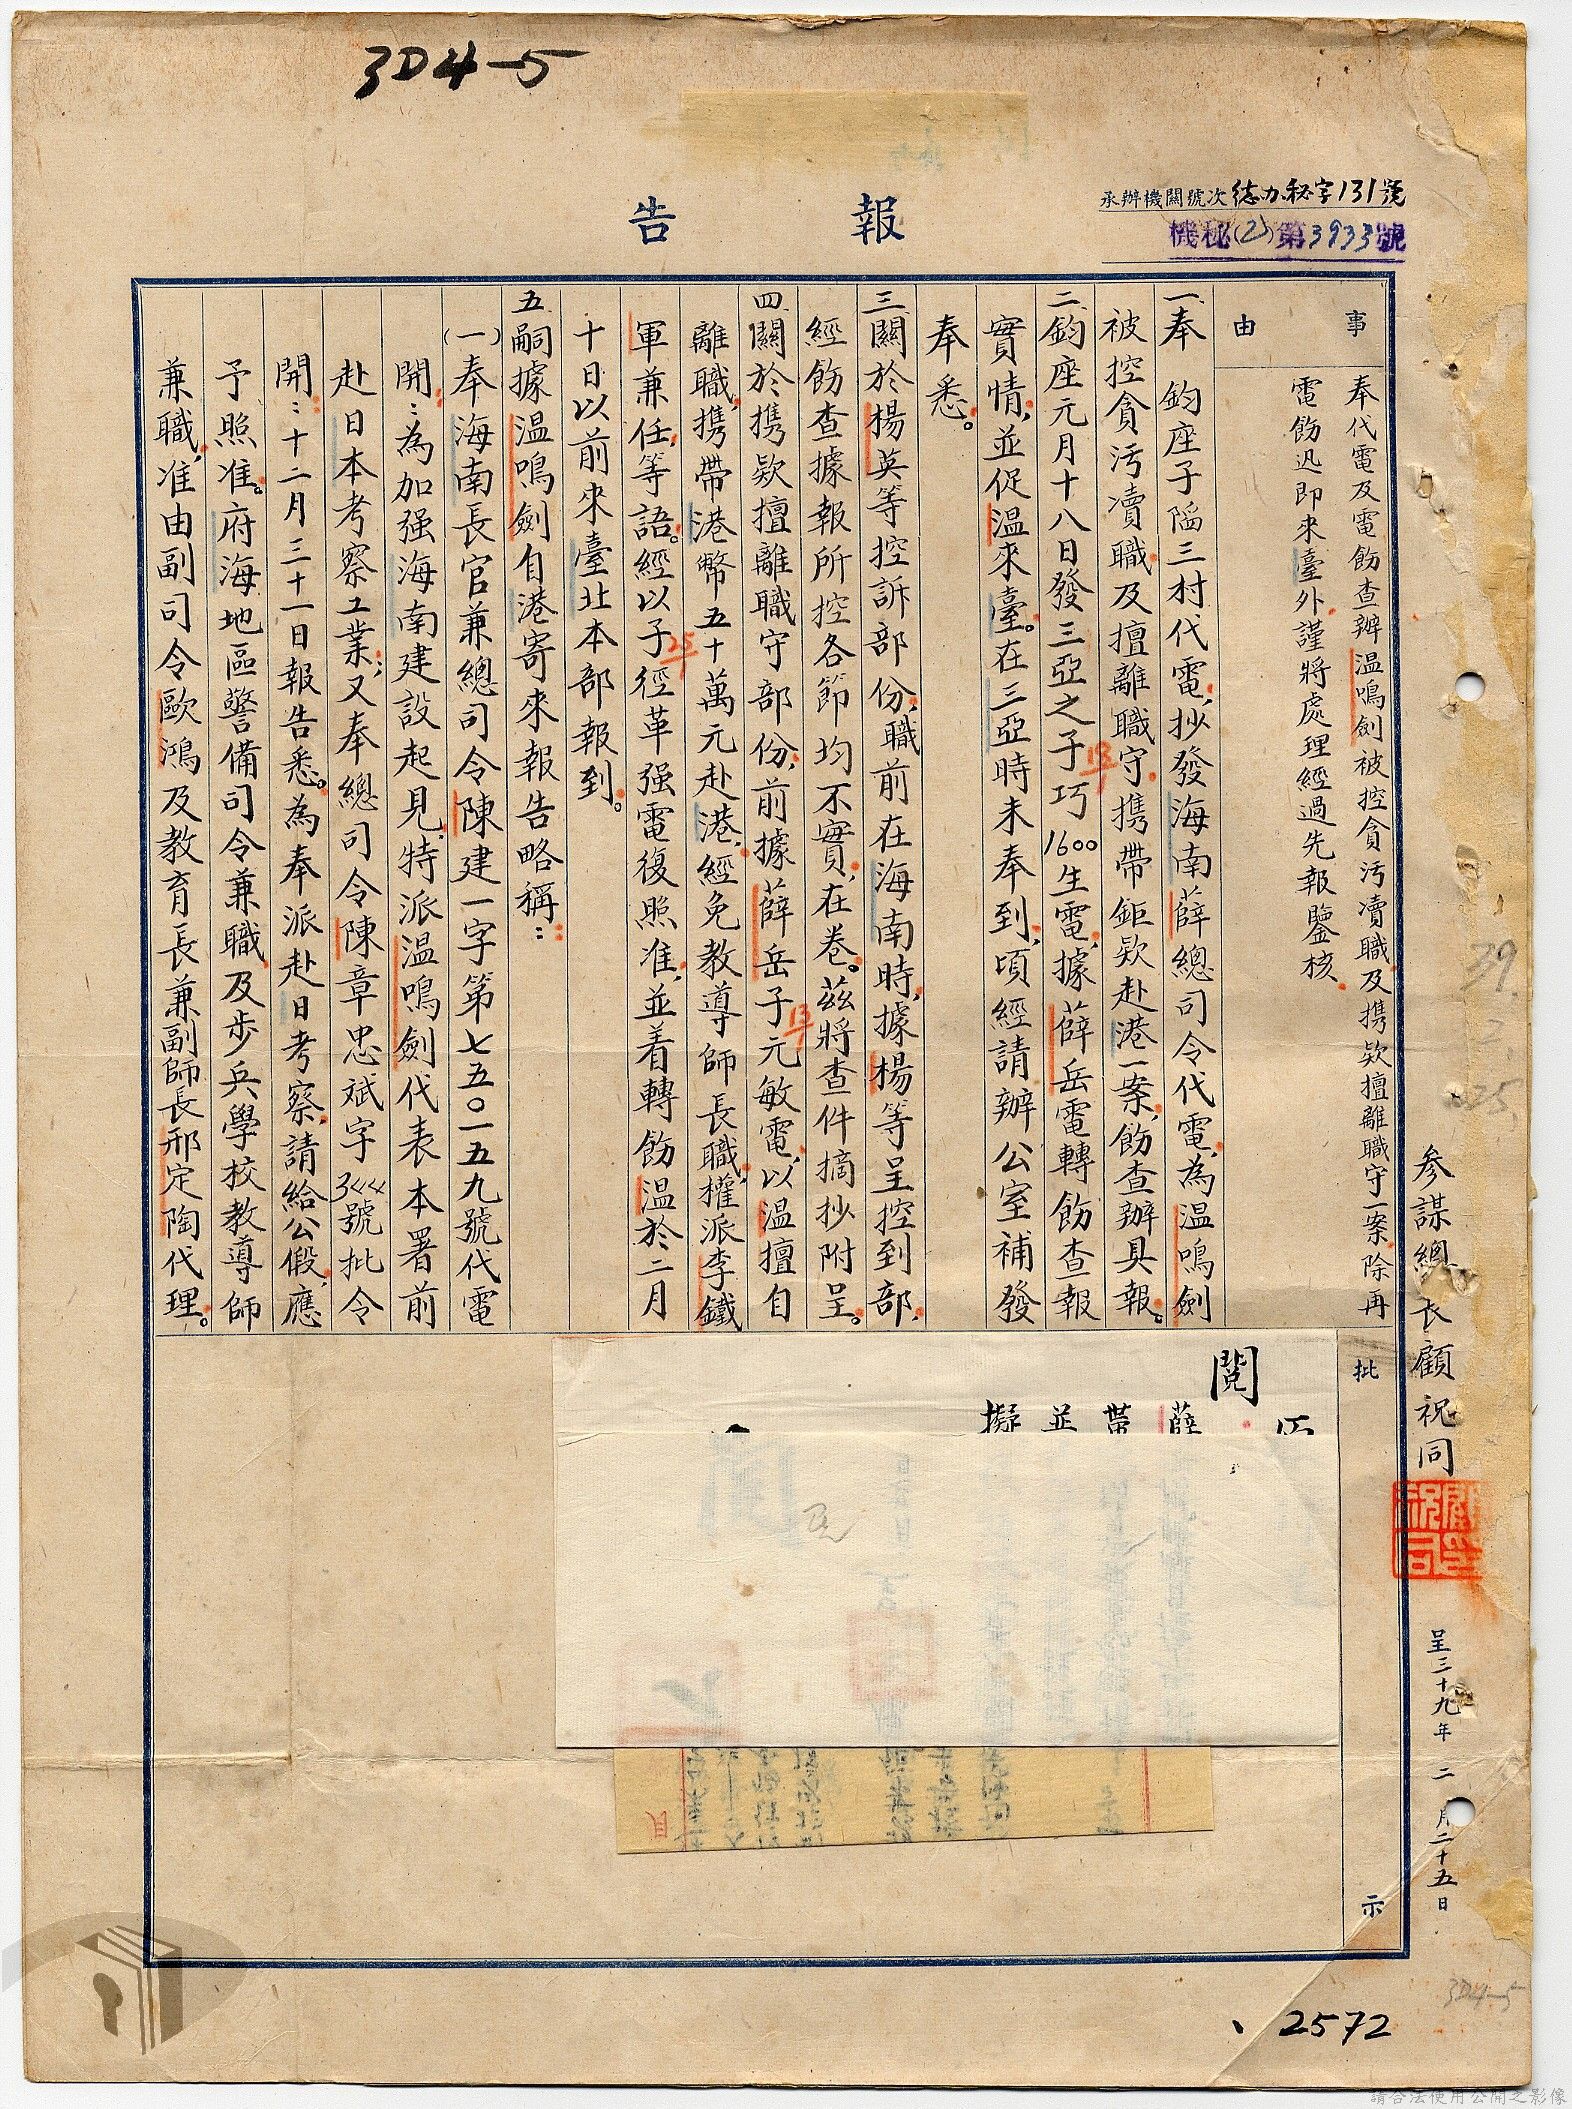 3D4-5
報告
承辦機關號次德办秘字131號
機秘(2)第3933號
參謀總長顧祝同
呈三十九年二月二十五日
39.2.25.
事由
奉代電及電飭查辦溫鳴劍被控貪污瀆職及携欵擅離職守一案，除再
電飭迅即來臺外，謹將處理經過先報鑒核。
一、奉　鈞座子隔三村代電，抄發海南薛總司令代電，為溫鳴劍
被控貪污瀆職及擅離職守，携帶鉅欵赴港一案，飭查辦具報。
二、鈞座元月十八日發三亞之子巧1600生電，據薛岳電轉飭查報
13
實情，並促溫來臺。在三亞時未奉到，頃經請辦公室補發
奉悉。
三、關於楊英等控訴部份，職前在海南時，據楊等呈控到部，
經飭查據報所控各節均不實，在卷。茲將查件摘抄附呈。
四、關於携欵擅離職守部份，前據薛岳子元敏電，以溫擅自
13
離職，携帶港幣五十萬元赴港，經免教導師長職，權派李鐵
軍兼任，等語。經以子徑革强電復照准，並着轉飭溫於二月
25
十日以前來臺北本部報到。
五、嗣據溫鳴劍自港寄來報告略稱：
(一)奉海南長官兼總司令陳建一字第七五〇一五九號代電
開：為加强海南建設起見，特派溫鳴劍代表本署前
赴日本考察工業；又奉總司令陳章忠斌字344號批令
開：十二月三十一日報告悉。為奉派赴日考察，請給公假，應
予照准。府海地區警備司令兼職及步兵學校教導師
兼職，准由副司令歐鴻及教育長兼副師長邢定陶代理。
批示
閱
薛
帶
並
擬
3D4-5
2572
請合法使用公開之影像